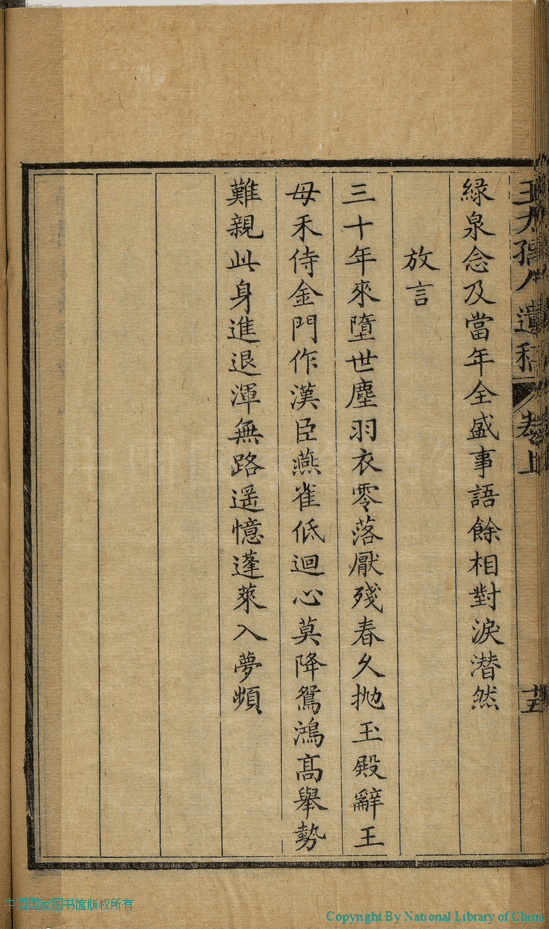 綠泉念及當年全盛事語餘相對淚潸然
放言
三十年來墮世塵羽衣零落厭殘春久抛玉殿辭王
母禾侍金門作漢臣燕雀低迴心莫降鴛鴻高舉勢
難親此身進退渾無路遥憶蓬萊入夢頻
遺稿
卷上
十五
中国国家图书馆版权所有
Copyright By National Library of China